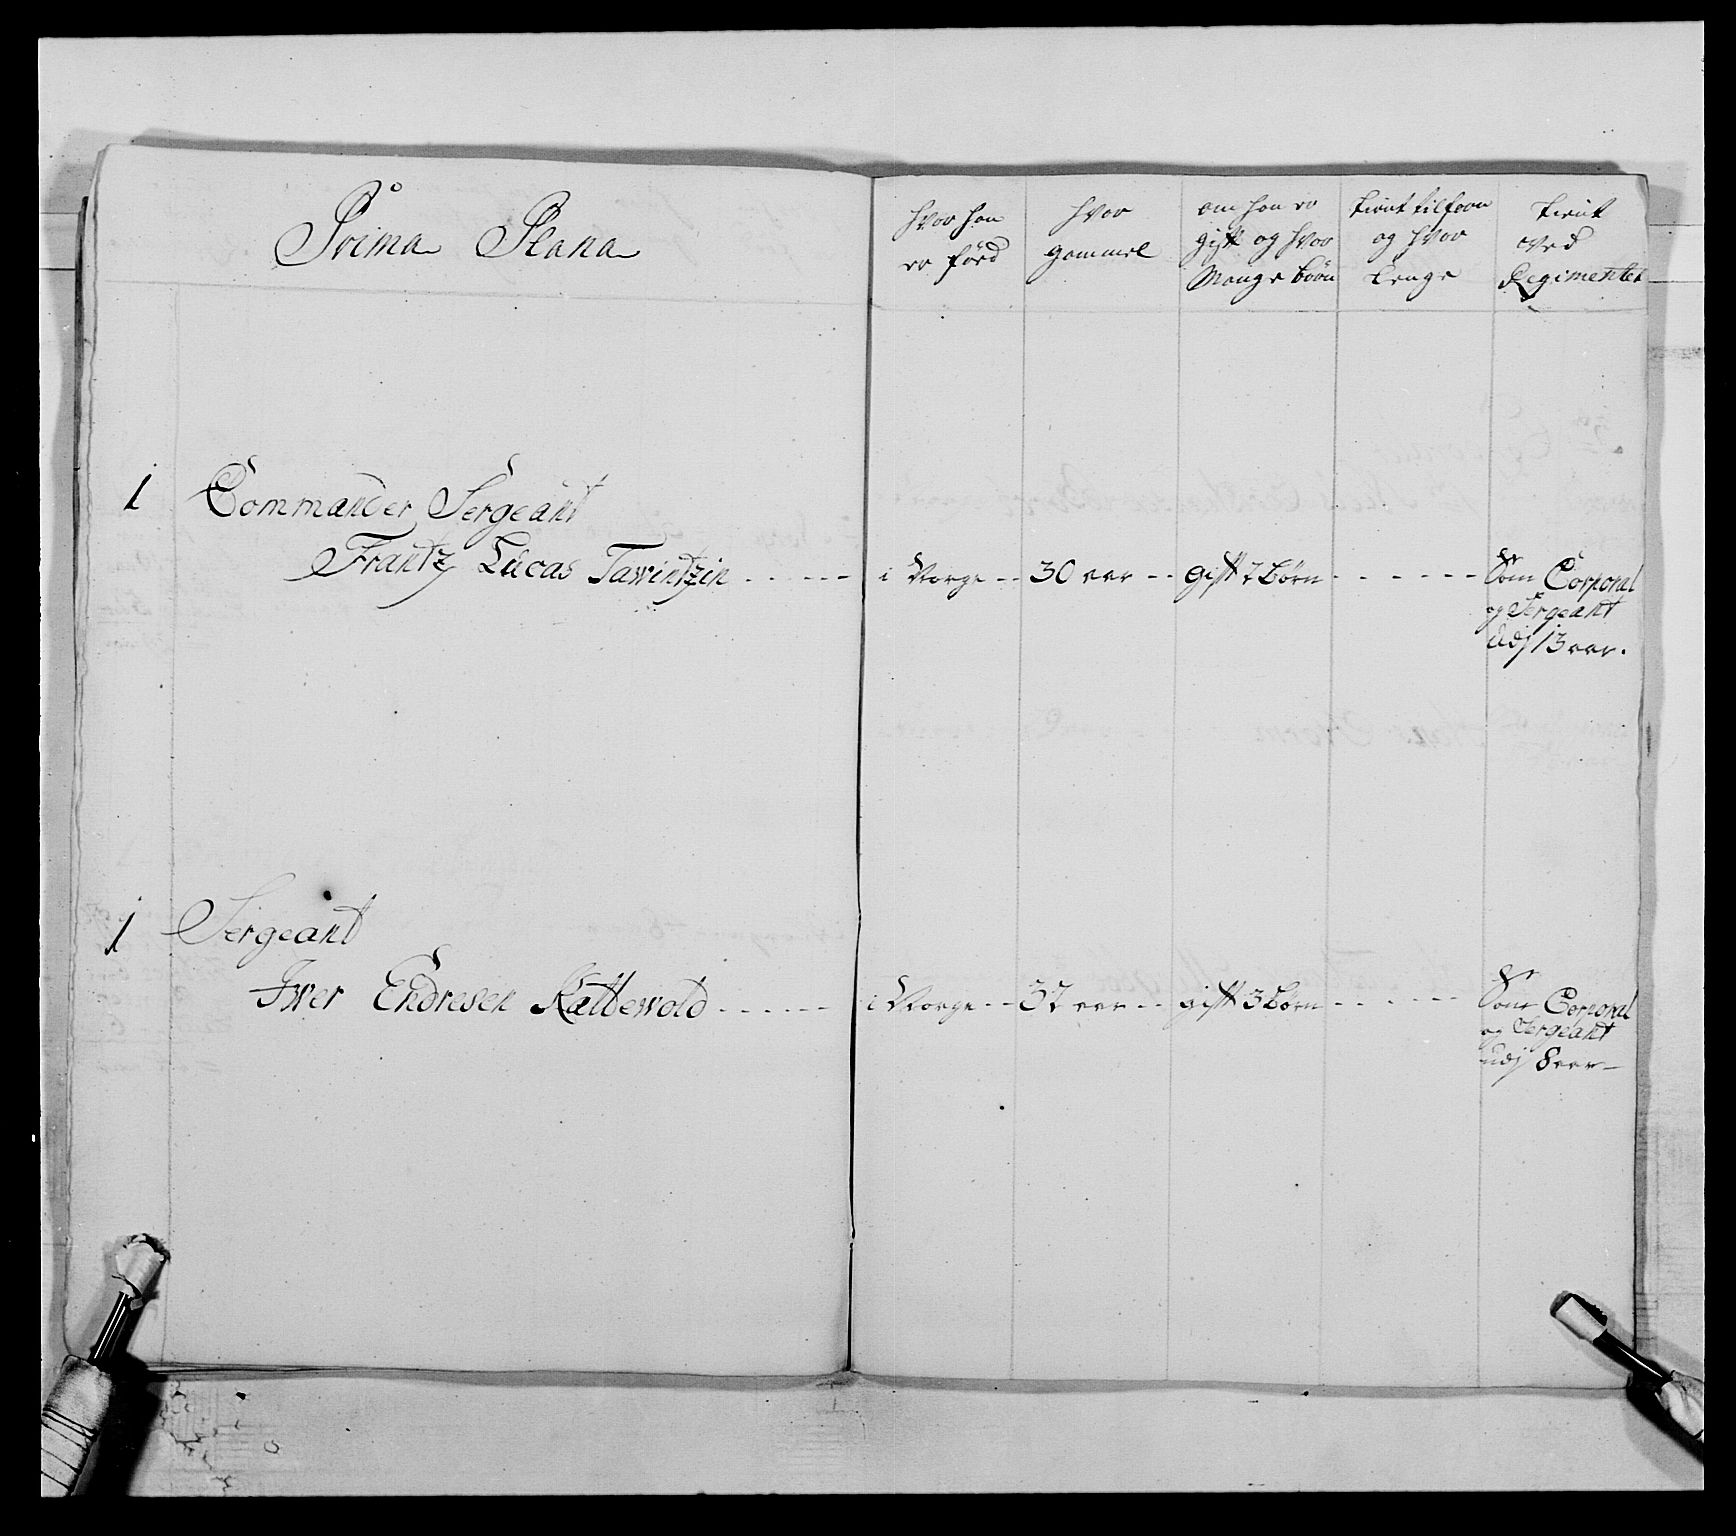 Prima Plana
hvor han
er föed
hvor
gammel
om han er
gift og hvor
Mange börn
tient tilforn
og hvor
Lenge
tient
ved
Regimentet
1 Commander Sergeant
Frantz Lucas Tawintzin ...... i Norge -- 30 aar -- gift 2 börn ------ Som Corporal
og Sergeant
udj 13 aar.
1 Sergeant
Iwer Endresen Kattewold ...... i Norge -- 37 aar -- gift 3 börn ------ Som Corporal
og Sergeant
udj 8 aar